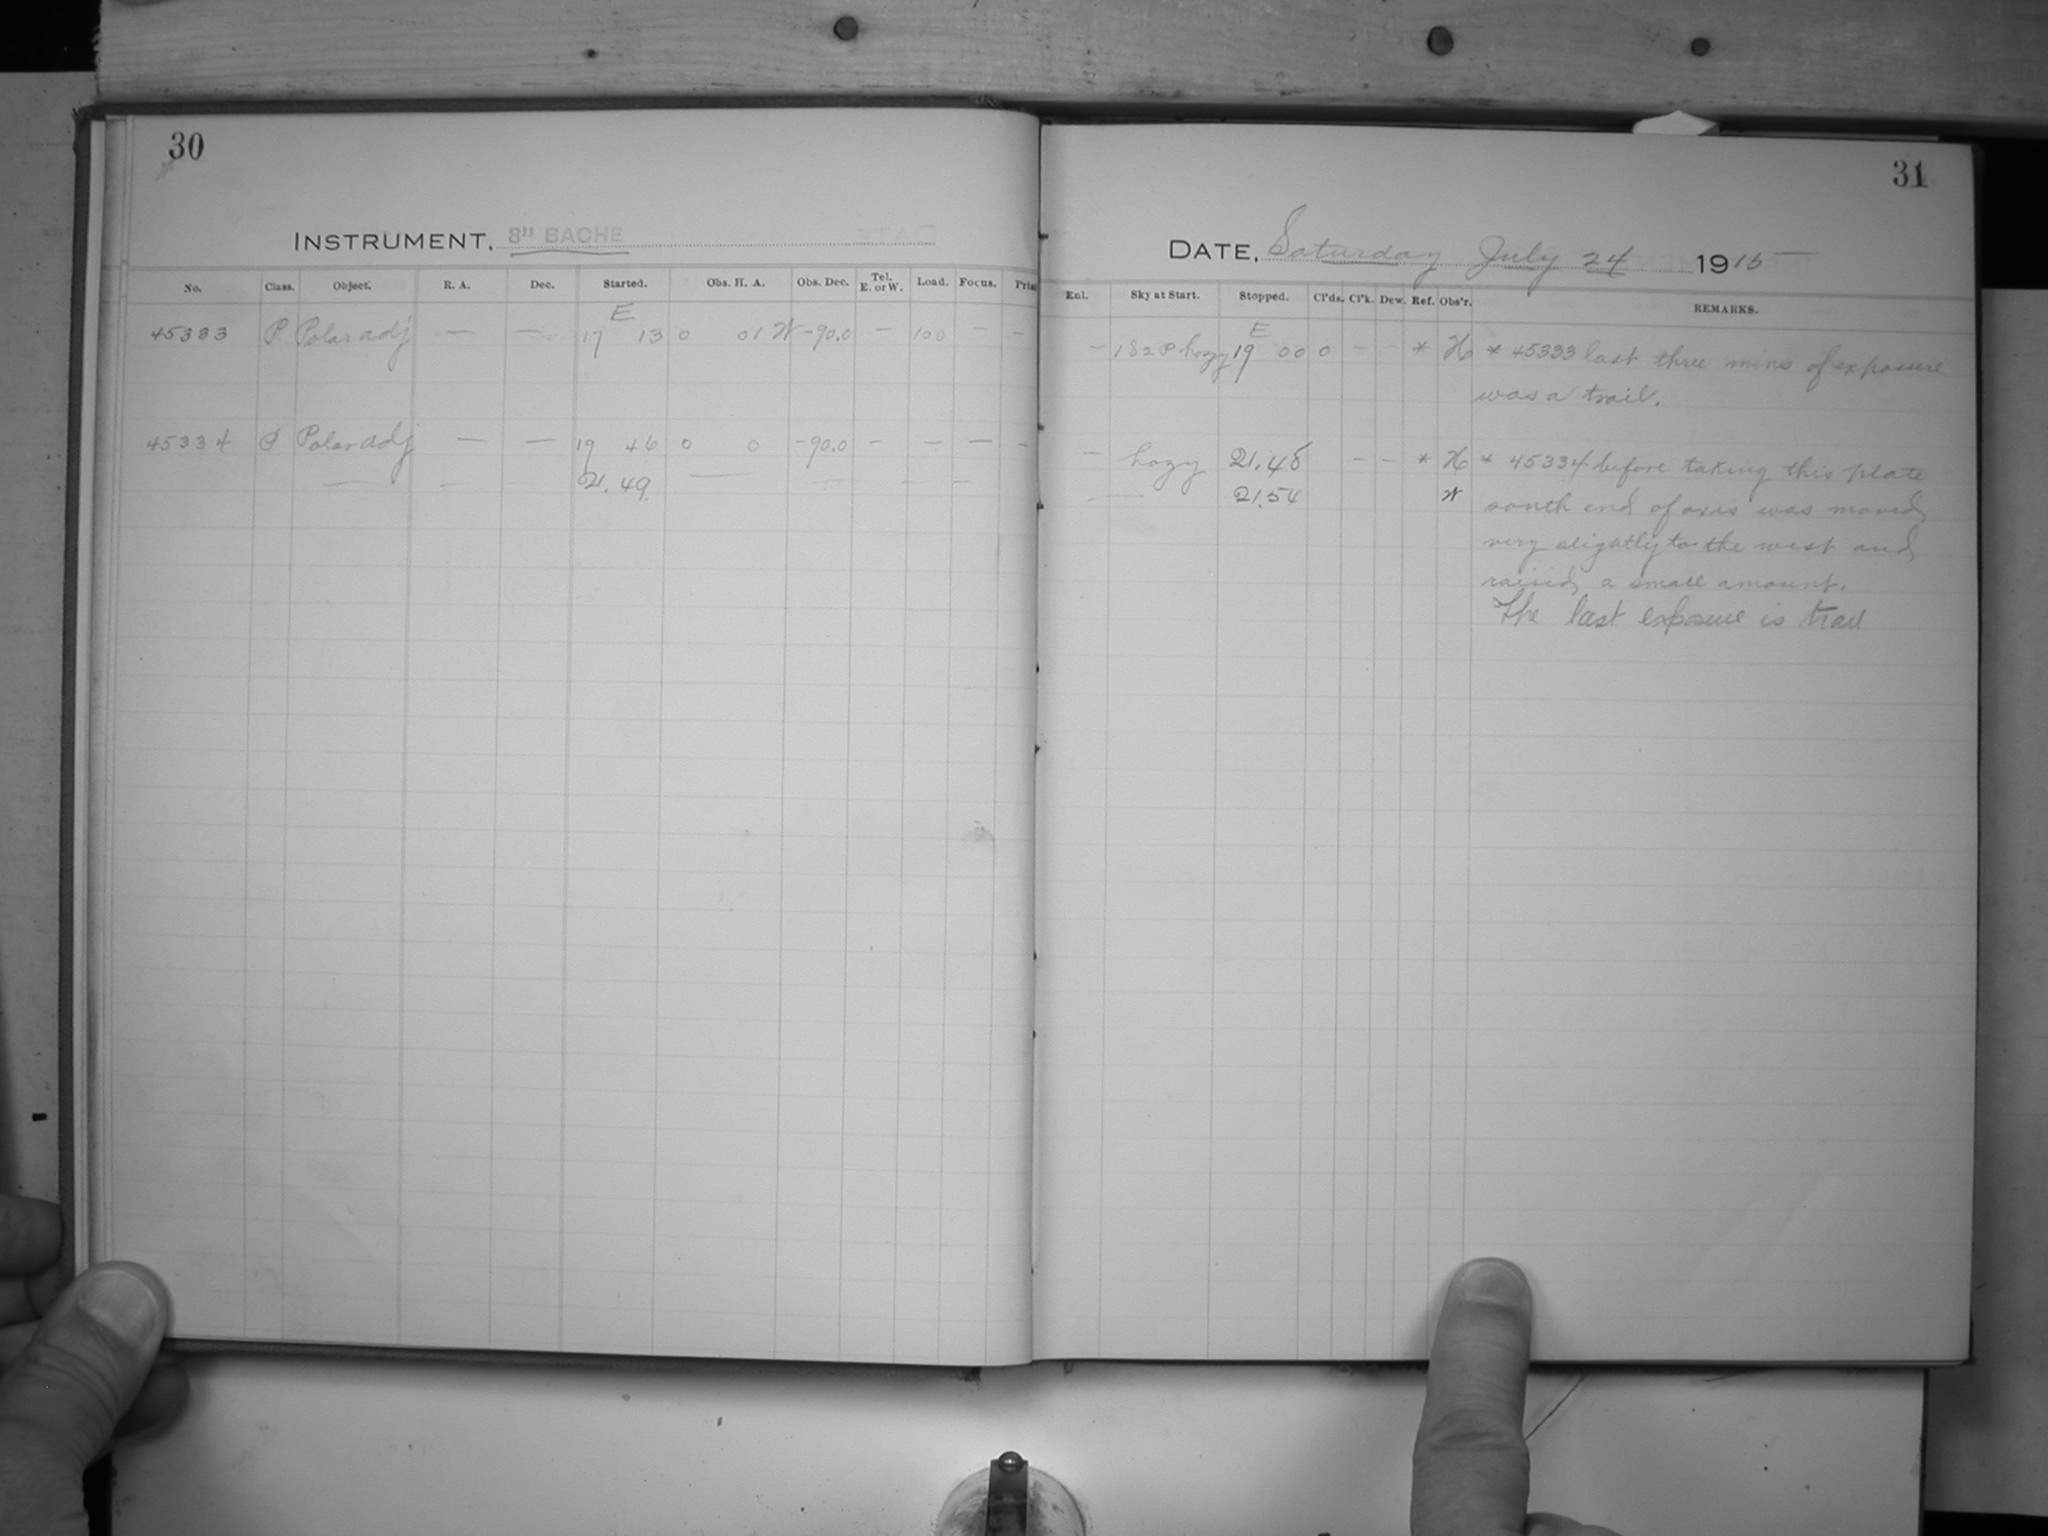 30
INSTRUMENT, 8" BACHE
No. Class. Object. R. A. Dec. Started. Obs. H. A. Obs. Dec. Tel. E. or W. Load. Focus. Pris
E
45333 P Polar adj — — 17 13 0 01 W -90.0 — 100 — —
45334 P Polar adj — — 19 46 0 0 -90.0 — — — —
— — — 21.49 — — — — —
31
DATE, Saturday July 24 1915
Enl. Sky at Start. Stopped. Cl'ds. Cl'k. Dew. Ref. Obs'r. REMARKS.
E
— 1 S 2 P hazy 19 00 0 — — * H * 45333 last three mins of exposure
was a trail.
— hazy 21.48 — — * H * 45334 before taking this plate
— 21.54 W south end of axis was moved
very slightly to the west and
raised a small amount.
The last exposure is trail